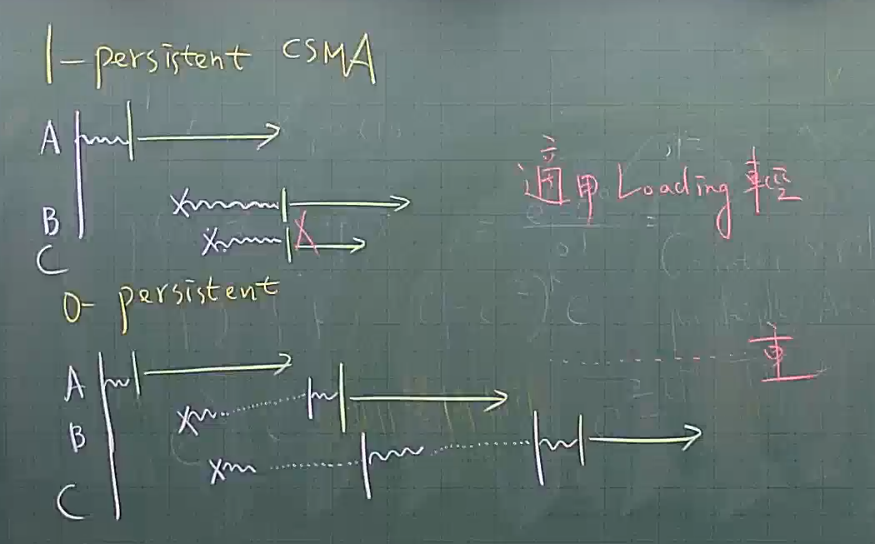 1-persistent CSMA
A
適用 Loading 輕
B
C
0-persistent
A
重
B
C